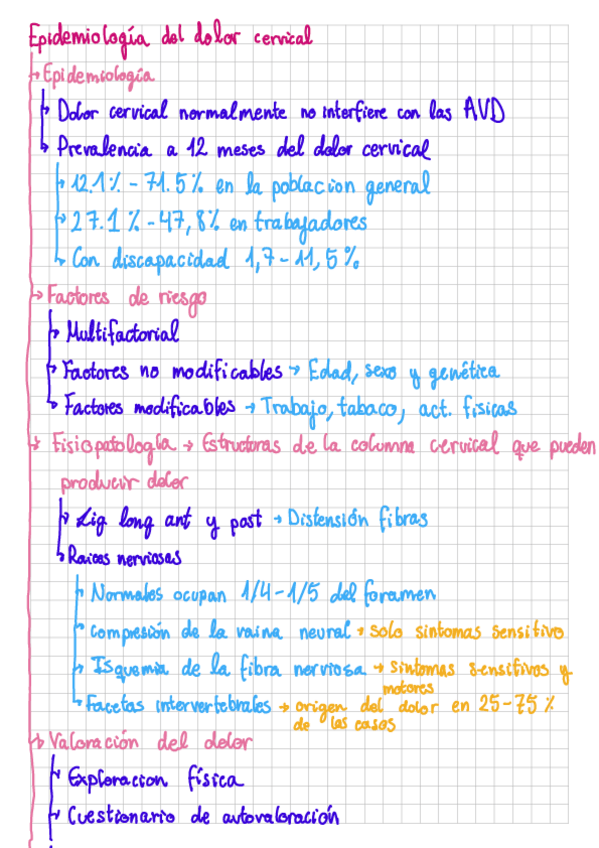 Epidemiología del dolor cervical
↳ Epidemiología
↳ Dolor cervical normalmente no interfiere con las AVD
↳ Prevalencia a 12 meses del dolor cervical
↳ 12.1% - 71.5% en la poblacion general
↳ 27.1% - 47,8% en trabajadores
↳ Con discapacidad 1,7 - 11,5%
↳ Factores de riesgo
↳ Multifactorial
↳ Factores no modificables → Edad, sexo y genética
↳ Factores modificables → Trabajo, tabaco, act. físicas
↳ Fisiopatología → Estructuras de la columna cervical que pueden
producir dolor
↳ Lig long ant y post → Distensión fibras
↳ Raices nerviosas
↳ Normales ocupan 1/4 - 1/5 del foramen
↳ compresión de la vaina neural → solo sintomas sensitivo
↳ Isquemia de la fibra nerviosa → sintomas sensitivos y
motores
↳ Facetas intervertebrales → origen del dolor en 25-75%
de las casos
↳ Valoración del dolor
↳ Exploracion física
↳ Cuestionario de autovaloración